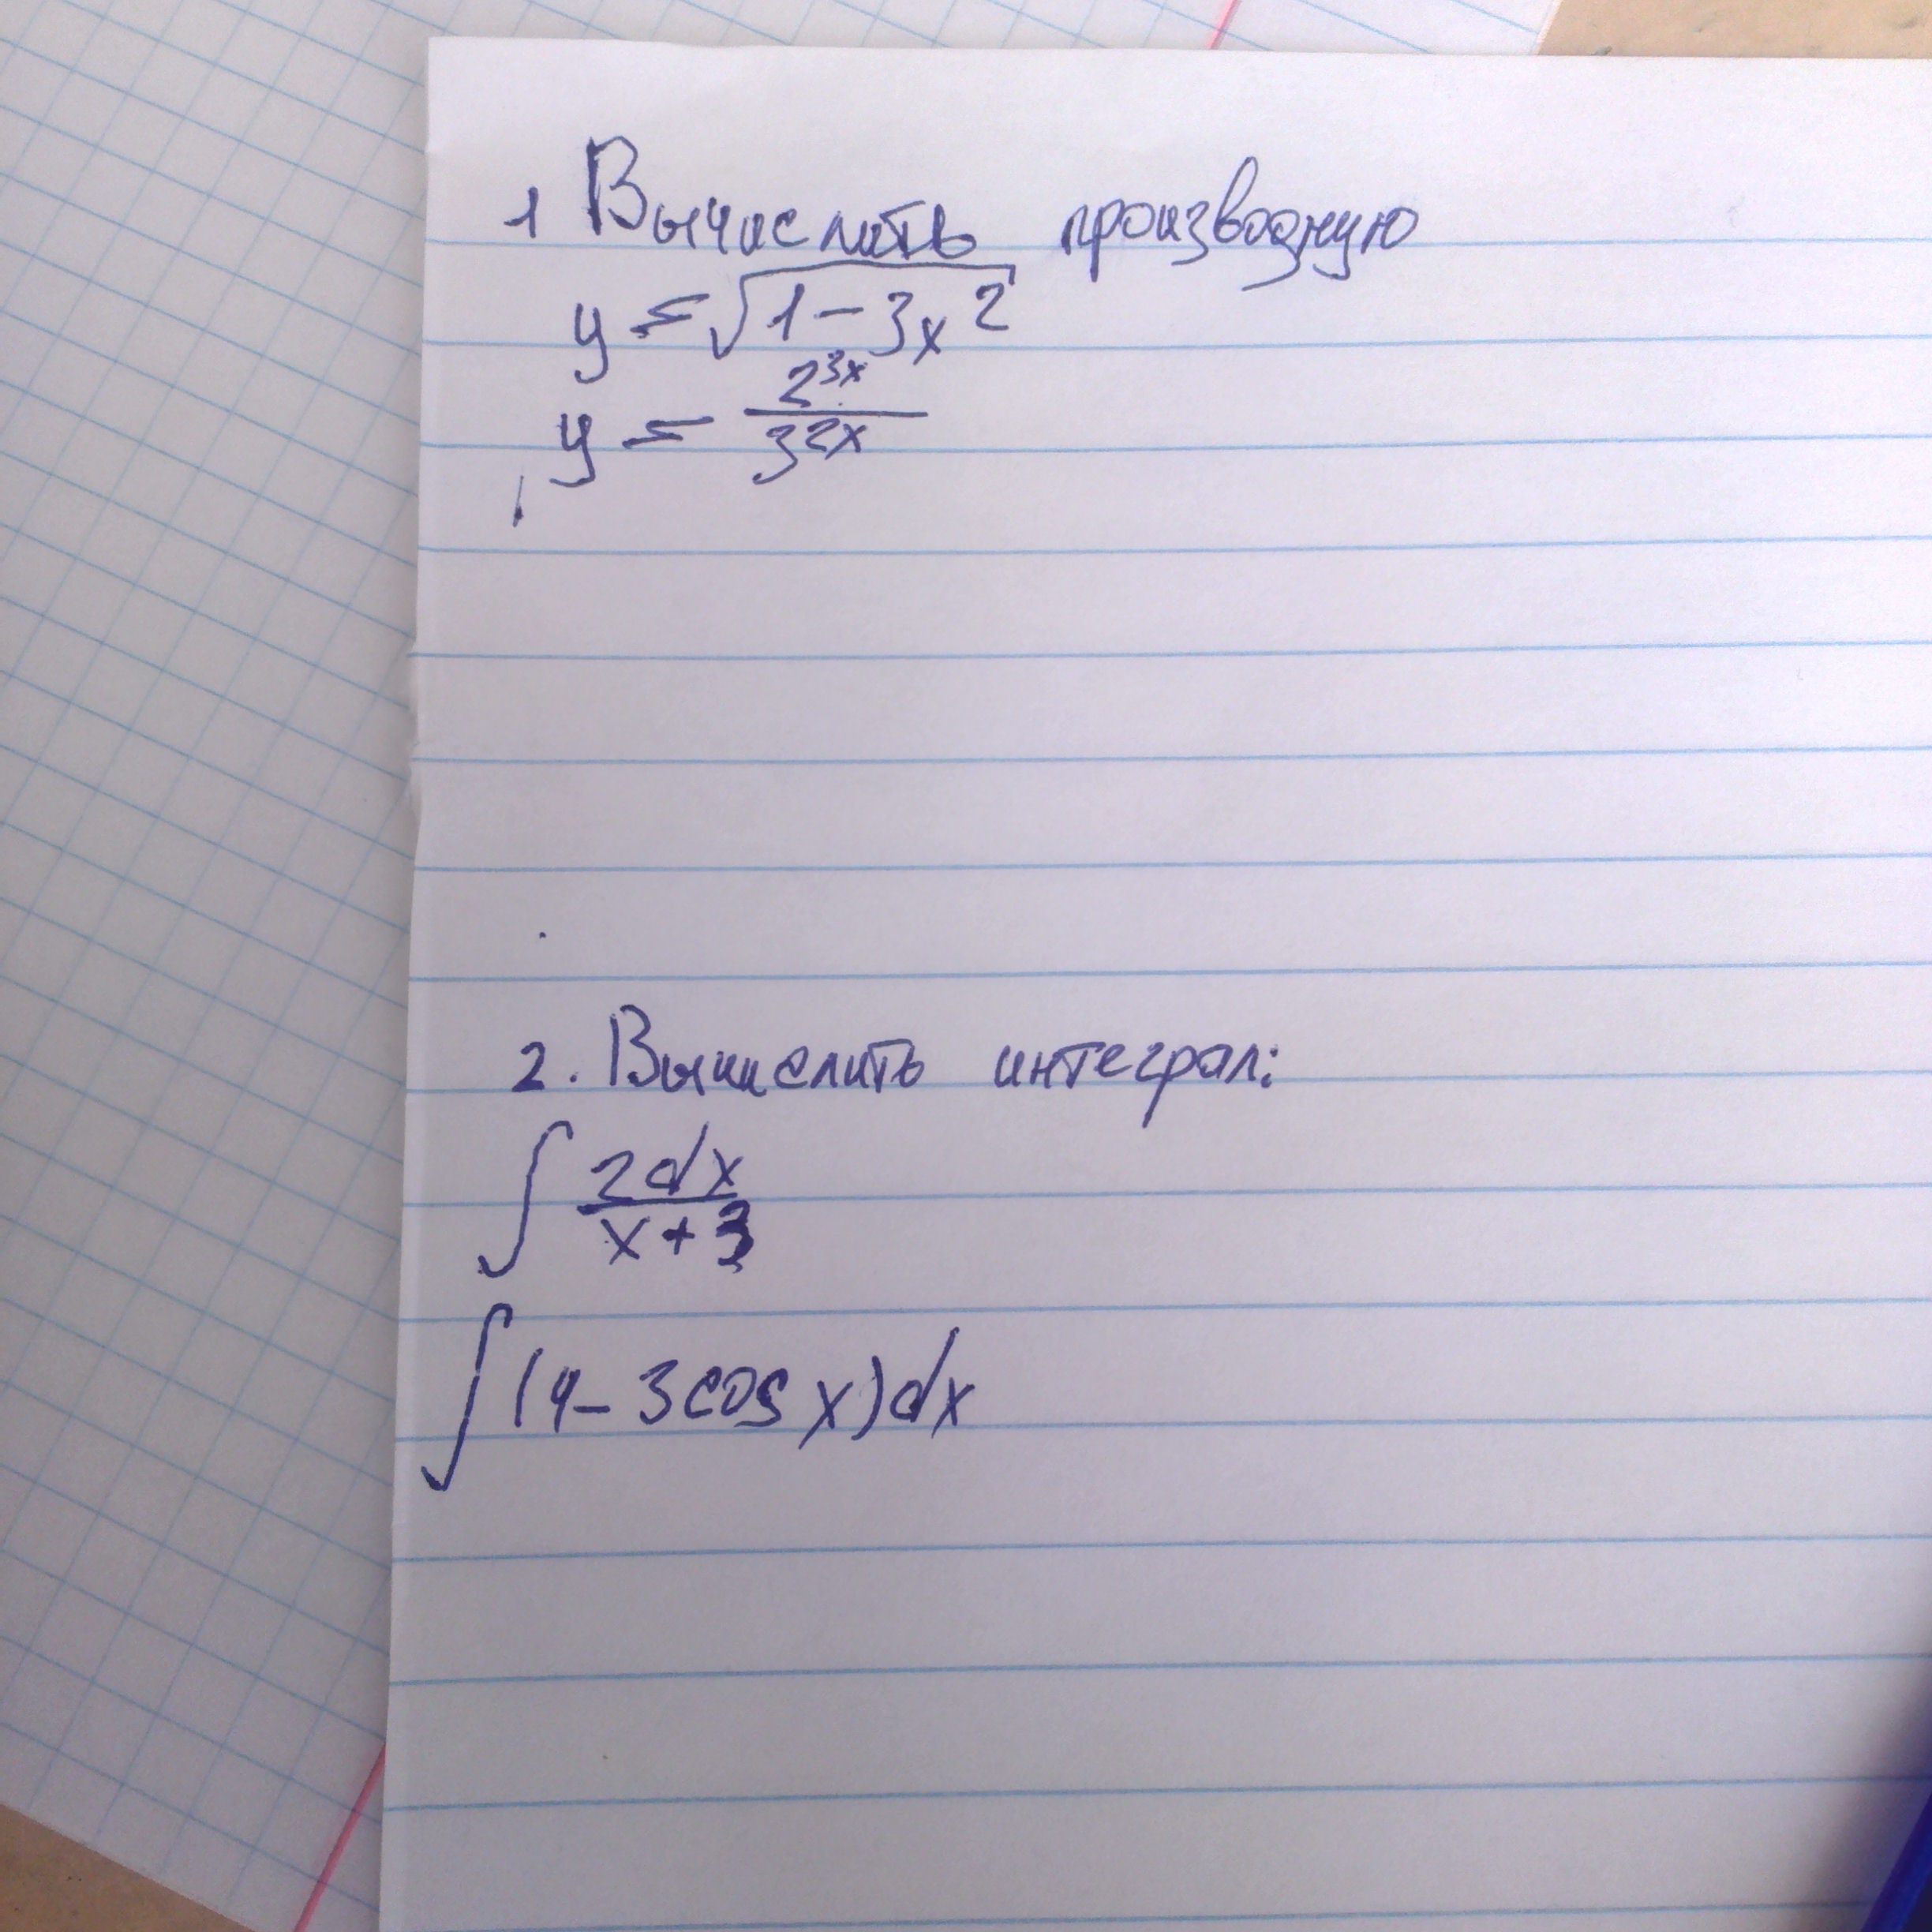 1 Вычислить производную
y = √1-3x²
y = 2^3x / 3^2x
2. Вычислить интеграл:
∫ 2dx / x+3
∫(4-3cos x)dx